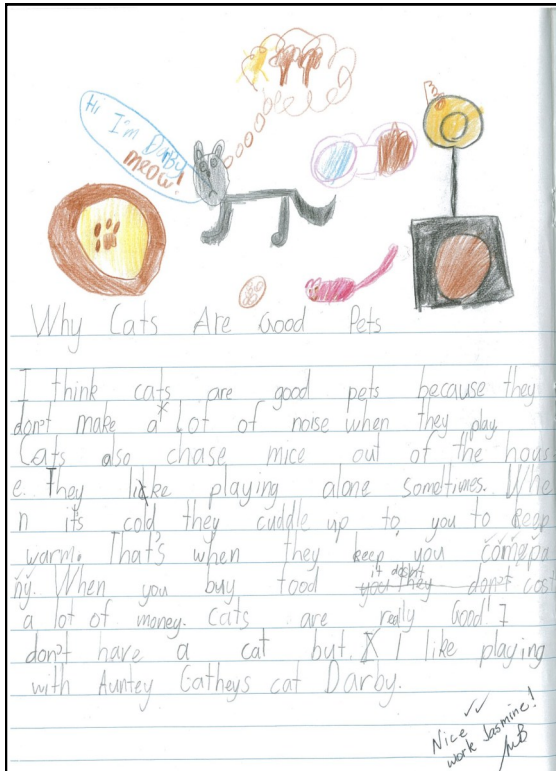 Hi I'm Darby
meow!
Why Cats Are Good Pets
I think cats are good pets because they
don't make a* Lot of noise when they play.
Cats also chase mice out of the hous
e. They like playing alone sometimes. Whe
n it's cold they cuddle up to you to keep
warm. That's when they keep you comepa
ny. When you buy food it doesn't cost
a lot of money. Cats are really Good! I
don't have a cat but I like playing
with Auntey Catheys cat Darby.
Nice
work Jasmine!
MB